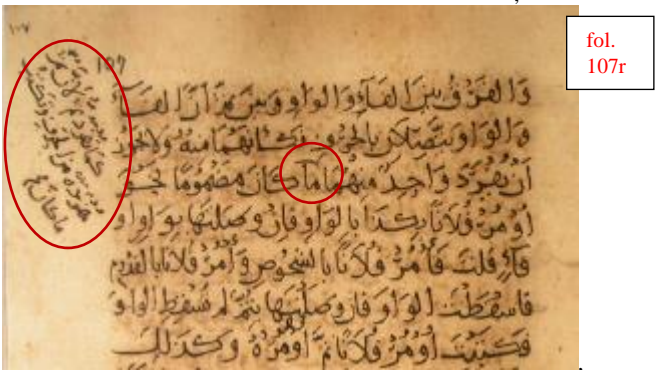 fol.
107r
١٠٧
107
وَالفَرْقُ بينَ الفَآءِ وَالواوِ وبينَ ثمَّ أنَّ الفَآءَ
وَالوَاوَ يتَّصلانِ بالحُروفِ فكَأنهُمَا منهُ ولا يجُوزُ
أنْ يُفرَدَ وَاحِدٌ منهُمَا ما كانَ مضمُومًا نحوَ
أُومُرْ فُلَانًا بكذا بالواو فإن وصلتها بواو او
فآءٍ قلتَ فَأْمُرْ فُلَانًا بالشخُوصِ وَأْمُرْ فلانًا بالقدوم
فاسقَطْتَ الواوَ فان وصَلْتَها بثمَّ لم تسقِطِ الواوَ
فكتبتَ أُومُرْ فُلَانًا ثمَّ اُومُرْهُ وكذلك